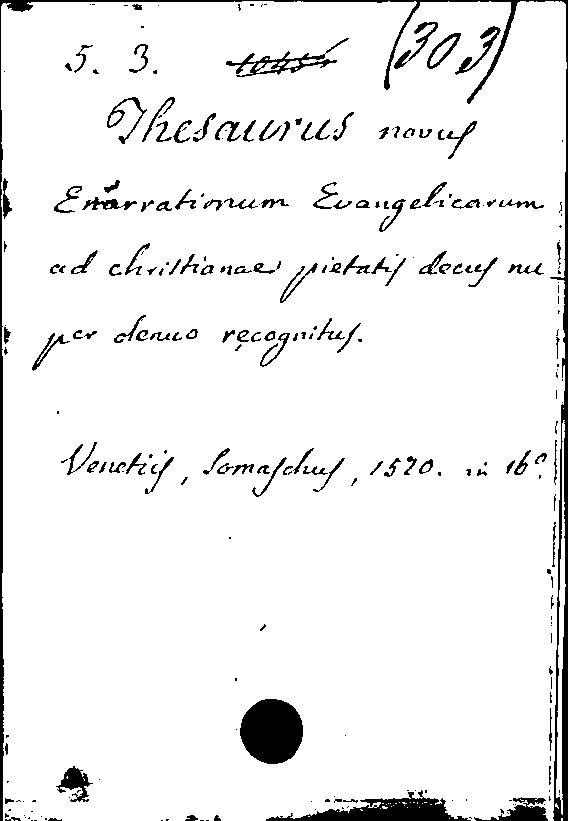 5. 3. (303)
Thesaurus novus
Enarrationum Evangelicarum
ad christianae pietatis decus nu
per denuo recognitus.
Venetiis, Somaschus, 1570. in 16°.